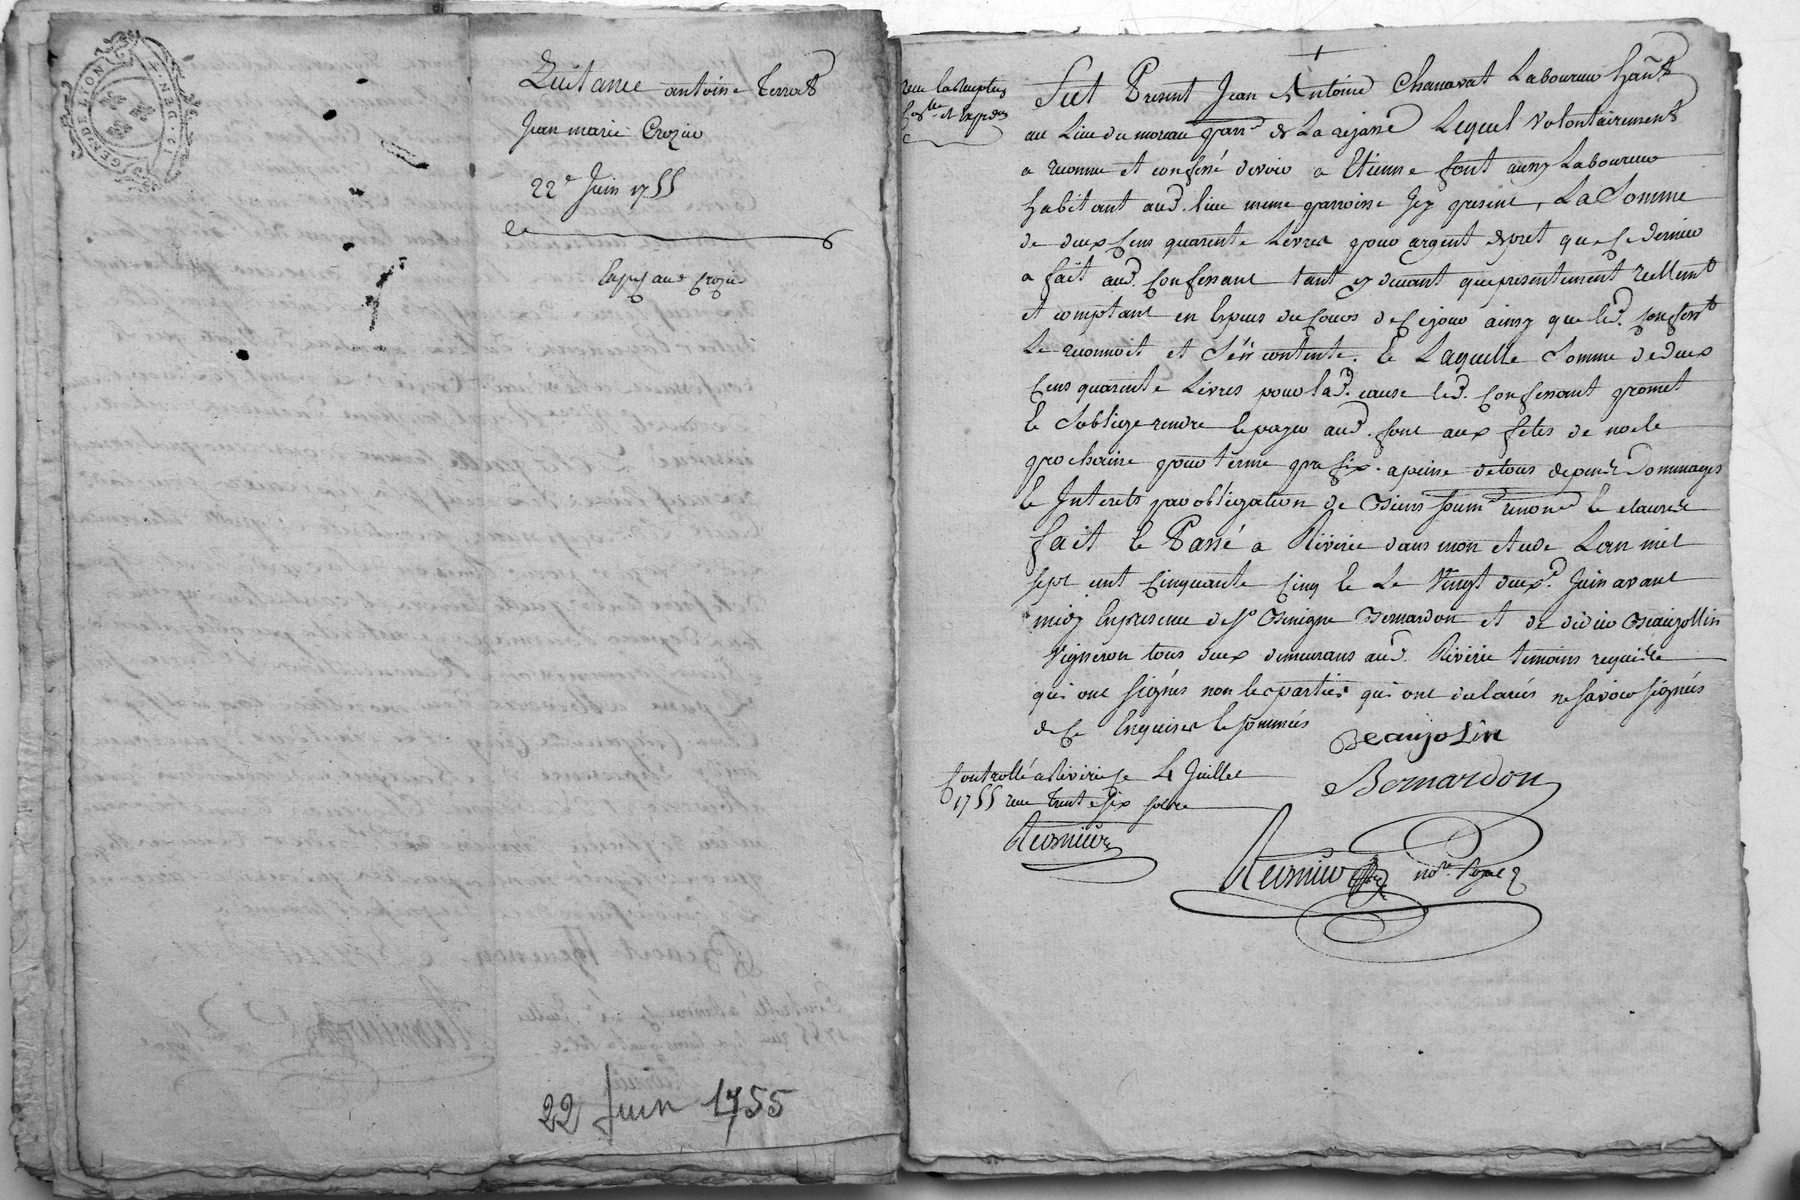 GEN DE LION
2 S. DEN.
Quitance antoine Terrat
Jean marie Crozier
22e Juin 1755
Exp aud Crozier
22 Juin 1755
Fut Present Jean Antoine Chanavat Laboureur hant
au Lieu du moreau parr de La rejasse Lequel volontairement
a reconnu et confessé devoir a Etienne font aussy Laboureur
habitant aud. lieu meme parroisse Icy present, La Somme
de deux Cens quarente Livres pour argent de pret que Ce dernier
a fait aud. Confessant tant cy devant que presentement reellemt
et comptant en Especes du Cours de Ce jour ainsy que led. Confesst
Le reconnoit et S'en contente. Et Laquelle Somme de deux
Cens quarente Livres pour lad. cause led. Confessant promet
Et S'oblige rendre Et payer aud. font aux fetes de noele
prochaine pour terme prefix. a peine de tous depens Dommages
Et Interets par obligation de Biens soum renon et clauses
fait Et Passé a Riverie dans mon etude Lan mil
sept cent Cinquante Cinq Et Le Vingt deux. Juin avant
midy En presence de Sr Benigne Bernardon et de didier Beaujollin
Vigneron tous deux demeurans aud. Riverie temoins requis
qui ont signés non les parties qui ont declarés ne savoir signés
de Ce Enquises Et sommés
Beaujolin
Bernardon
Controllé a Riverie Ce 4 Juillet
1755 reçu Trente Six sols